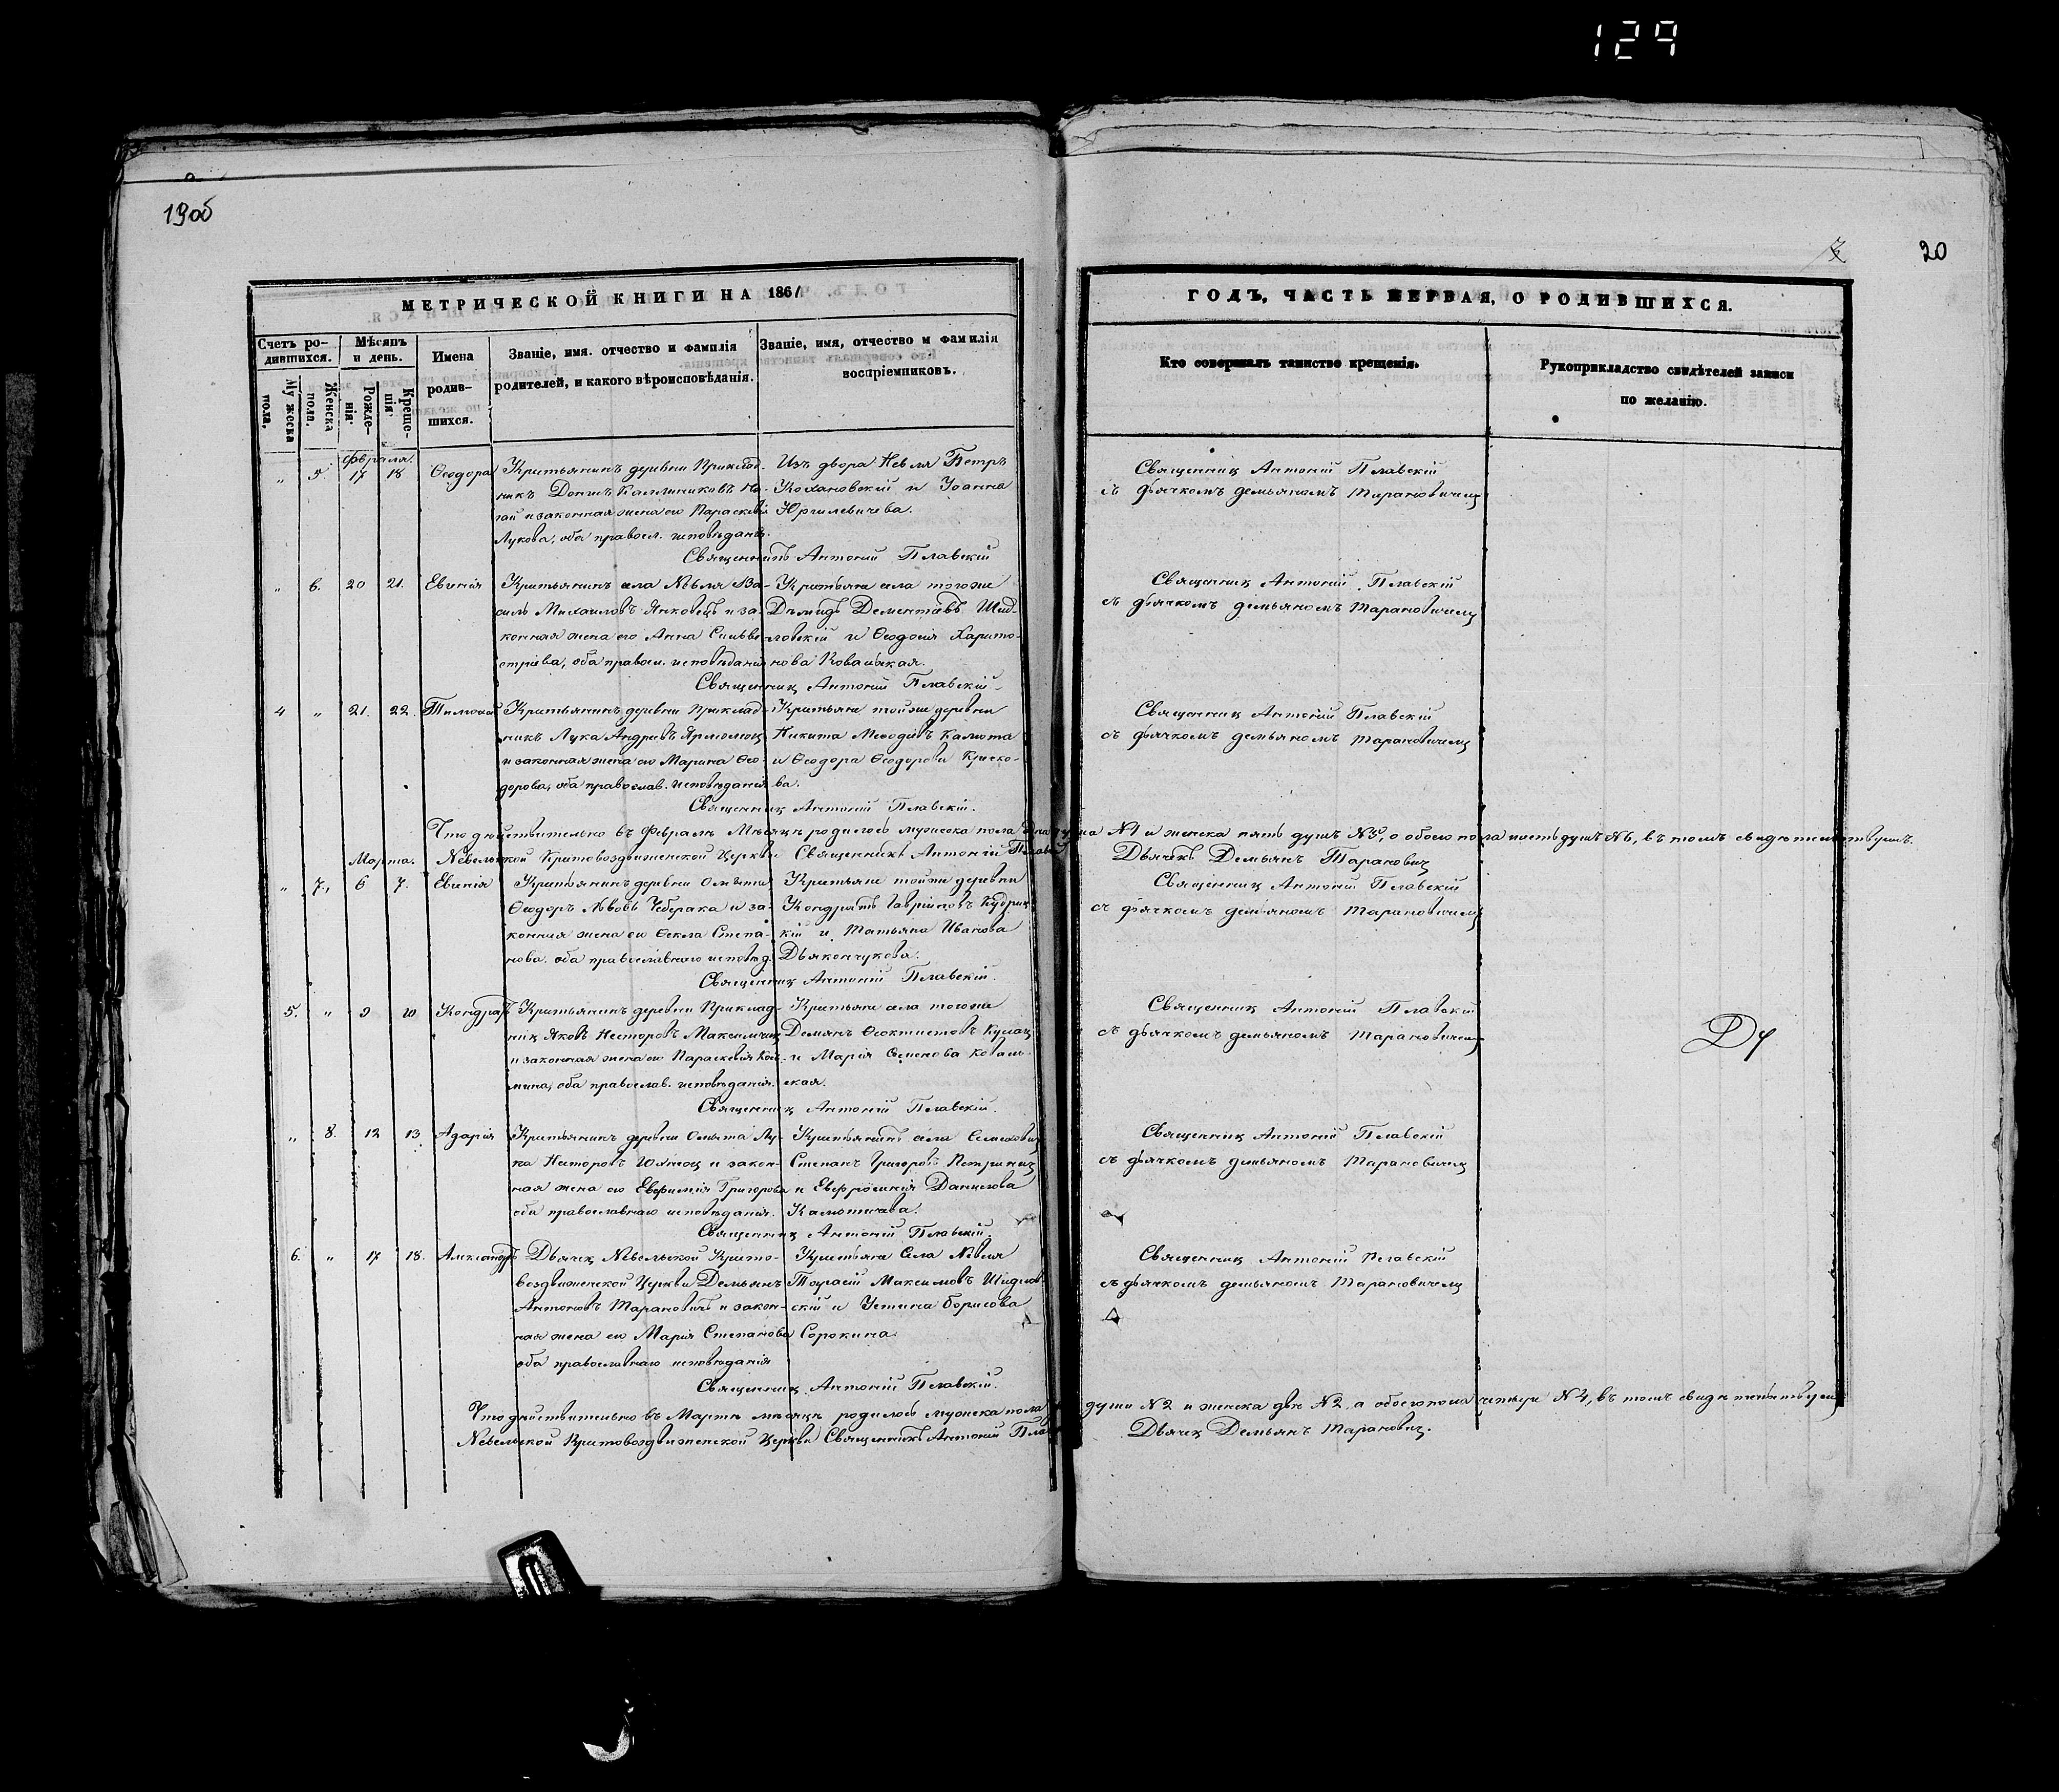 129
19об
20
МЕТРИЧЕСКОЙ КНИГИ НА 1861
ГОДЪ, ЧАСТЬ ПЕРВАЯ, О РОДИВШИХСЯ.
Счетъ ро-
дившихся.
Му жеска
пола.
Женска
пола.
Мѣсяцъ
и день.
Рожде-
нія.
Креще-
нія.
Имена
родив-
шихся.
Званіе, имя. отчество и фамилія
родителей, и какого вѣроисповѣданія.
Званіе, имя, отчество и фамилія
воспріемниковъ.
Кто совершалъ таинство крещенія.
Рукоприкладство свидѣтелей записи
по желанію.
Февраля.
" 5. 17 18 Ѳеодора
Крестьянинъ деревни Приклад-
никъ Денисъ Калинниковъ
и законная жена его Параскевія
Лукова, оба правосл. исповѣданія.
Изъ двора Невля Петръ
Кохановскій и Іоанна
Юргилевичева.
Священникъ Антоній Плавскій
съ дьячкомъ Демьяномъ Тарановичемъ
Священникъ Антоній Плавскій
" 6. 20 21. Евгенія
Крестьянинъ села Невля Ва-
силь Михаиловъ Янковецъ и за-
конная жена его Анна Сильве-
строва, оба правосл. исповѣданія
Крестьяне села тогоже
Демидъ Дементьевъ Шид-
ловскій и Ѳеодосія Харито-
нова Ковальская.
Священникъ Антоній Плавскій
съ дьячкомъ Демьяномъ Тарановичемъ
Священникъ Антоній Плавскій
4 " 21. 22. Тимоѳей
Крестьянинъ деревни Приклад-
никъ Лука Андреевъ Ярмолюкъ
и законная жена его Марина Ѳео-
дорова, оба православ. исповѣданія
Крестьяне тойже деревни
Никита Меѳодіевъ Калюта
и Ѳеодора Ѳеодорова
ва.
Священникъ Антоній Плавскій
съ дьячкомъ Демьяномъ Тарановичемъ
Священникъ Антоній Плавскій.
Что дѣйствительно въ Февралѣ Мѣсяцѣ родилось мужеска пола одна душа №1 и женска пять душъ №5, а обоего пола шесть душъ №6, въ томъ свидѣтельствуемъ.
Невельской Крестовоздвиженской Церкви Священникъ Антоній Плавскій
Дьячекъ Демьянъ Тарановичъ
Марта.
" 7. 6 7. Евгенія
Крестьянинъ деревни Омыта
Ѳеодоръ Львовъ Чеберака и за-
конная жена его Ѳекла Степа-
нова. оба православнаго исповѣд.
Крестьяне тойже деревни
Кондратъ Гавріиловъ Кудриц-
кій и Татьяна Иванова
Дьякончукова.
Священникъ Антоній Плавскій
съ дьячкомъ Демьяномъ Тарановичемъ
Священникъ Антоній Плавскій.
5. " 9 10 Кондратъ
Крестьянинъ деревни Приклад-
никъ Яковъ Несторовъ Максимчукъ
и законная жена его Параскевія Козь-
мина, оба православ. исповѣданія.
Крестьяне села тогоже
Демянъ Ѳеоктистовъ Кулакъ
и Марія Семенова Коваль-
ская.
Священникъ Антоній Плавскій
съ дьячкомъ Демьяномъ Тарановичемъ
Священникъ Антоній Плавскій.
" 8. 12 13 Агарія
Крестьянинъ деревни Омыта Лу-
ка Несторовъ Юхнюкъ и закон-
ная жена его Евфимія Григорова
оба православнаго исповѣданія.
Крестьянинъ села
Степанъ Григоровъ
и Евфросинія Данилова
Калютчева.
Священникъ Антоній Плавскій
съ дьячкомъ Демьяномъ Тарановичемъ
Священникъ Антоній Плавскій.
6. " 17 18. Александръ
Дьячекъ Невельской Кресто-
воздвиженской Церкви Демьянъ
Антоновъ Тарановичъ и закон-
ная жена его Марія Степанова
оба православнаго исповѣданія
Крестьяне Села Невля
Тарасій Максимовъ Шидлов-
скій и Устина Борисова
Сорокина
Священникъ Антоній Плавскій
съ дьячкомъ Демьяномъ Тарановичемъ
Священникъ Антоній Плавскій.
Что дѣйствительно въ Мартѣ мѣсяцѣ родилось мужеска пола души №2 и женска двѣ №2, а обоего пола четыре №4, въ томъ свидѣтельствуемъ
Невельской Крестовоздвиженской Церкви Священникъ Антоній Пла
Дьячекъ Демьянъ Тарановичъ.